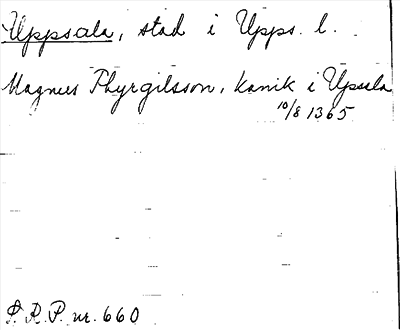 Uppsala, stad i Upps. l.
Magnus Thyrgilsson, kanik i Upsala
10/8 1365
S. R. P. nr. 660